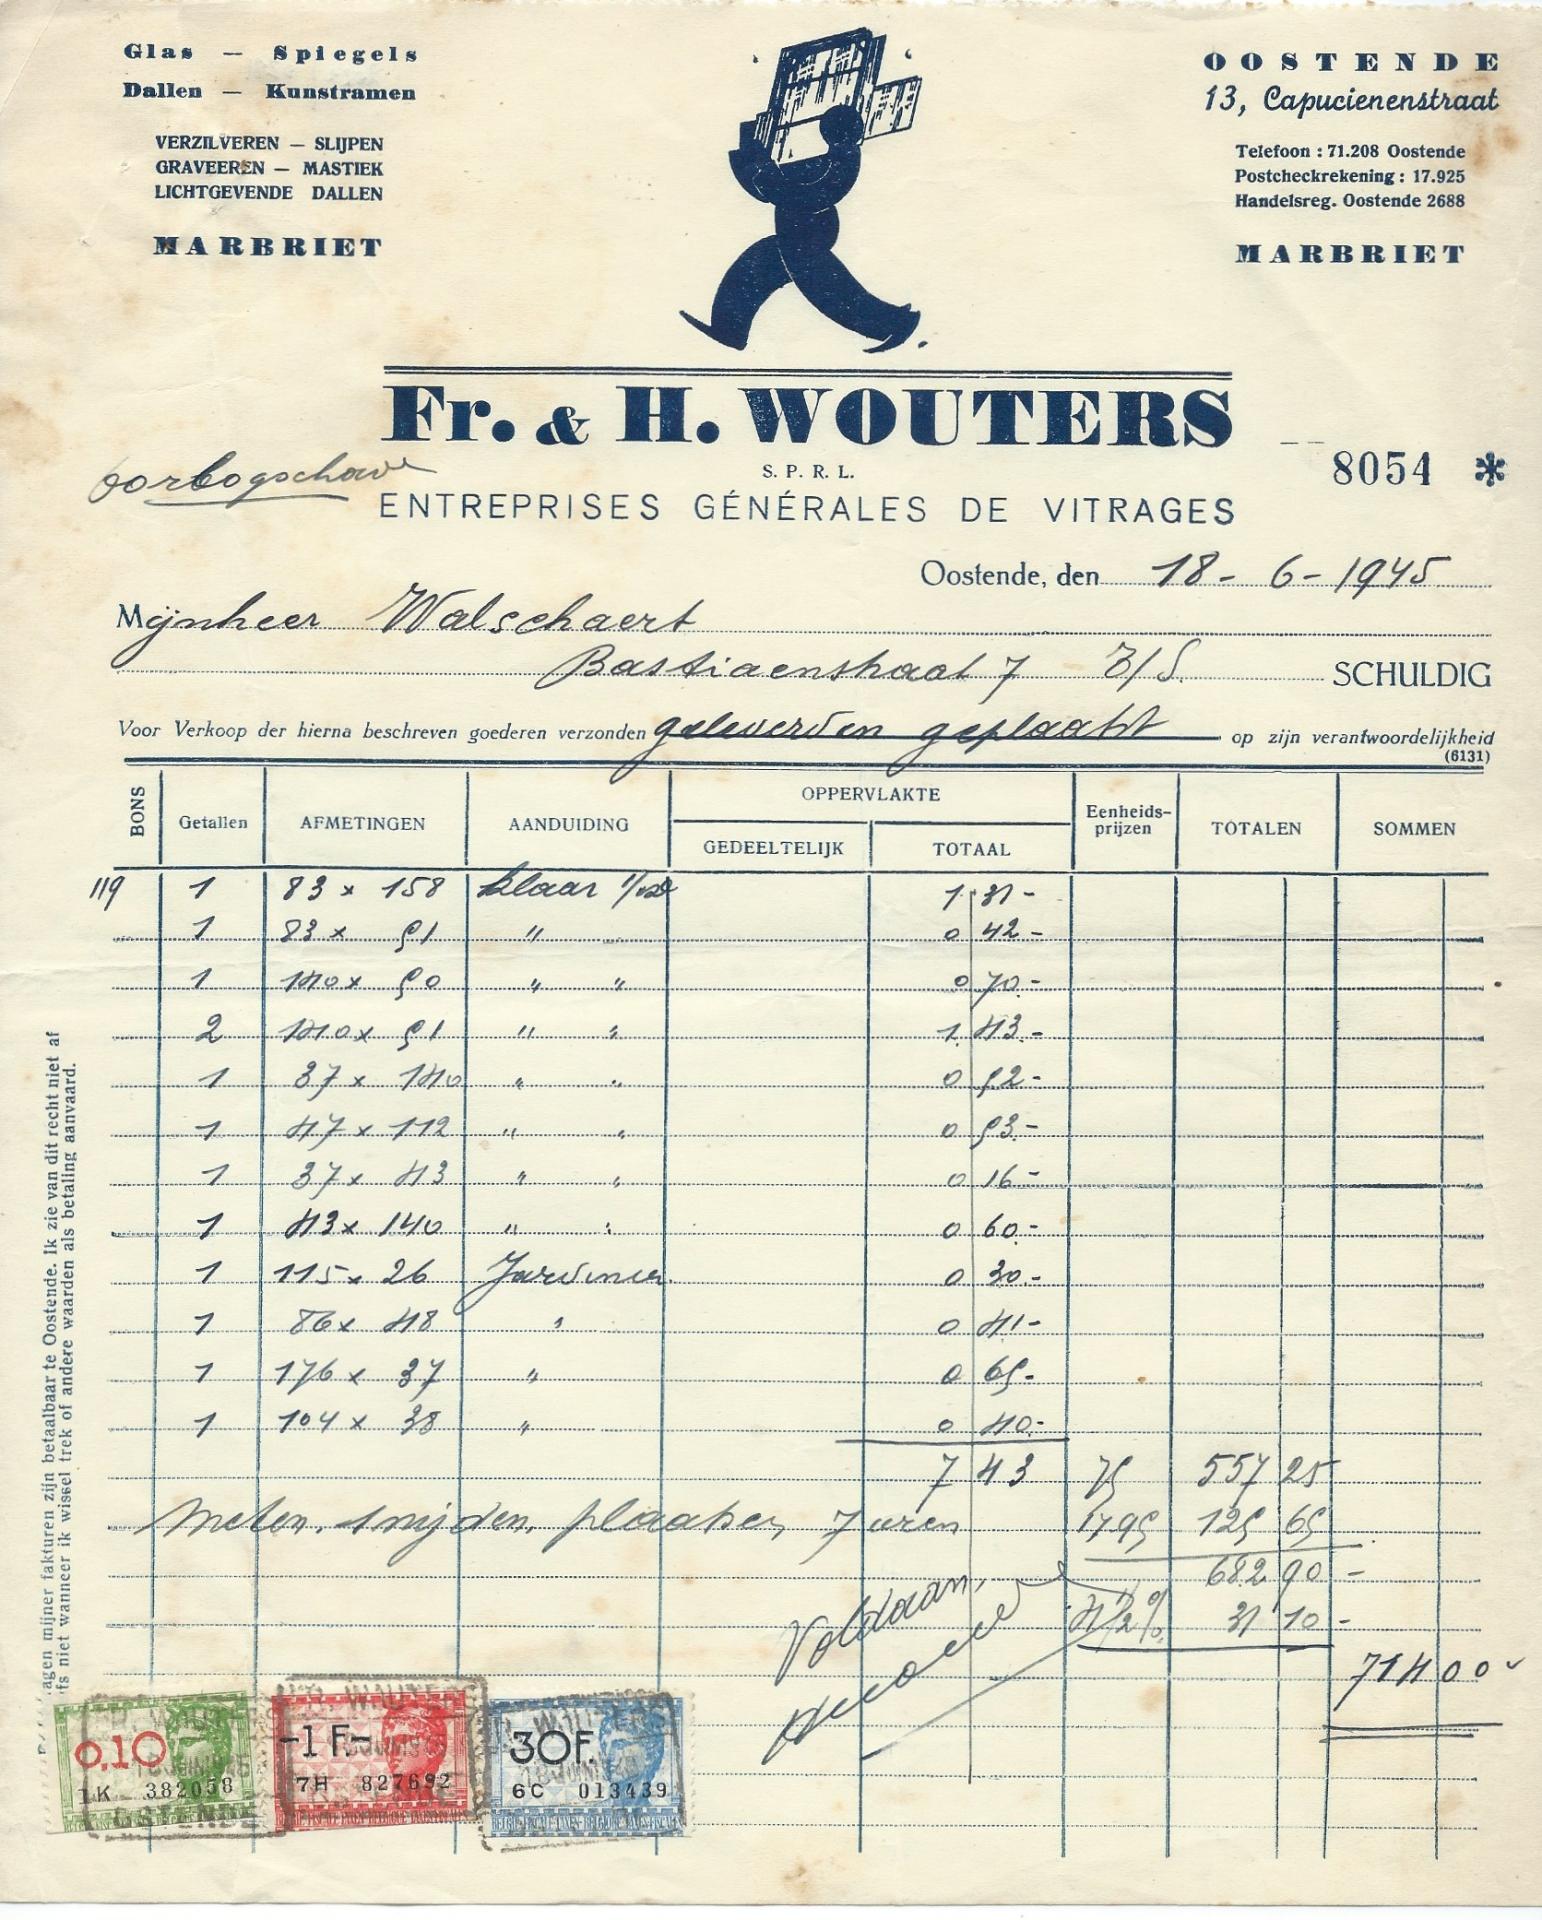 Glas — Spiegels
Dallen — Kunstramen
VERZILVEREN — SLIJPEN
GRAVEEREN — MASTIEK
LICHTGEVENDE DALLEN
MARBRIET
OOSTENDE
13, Capucienenstraat
Telefoon : 71.208 Oostende
Postcheckrekening : 17.925
Handelsreg. Oostende 2688
MARBRIET
Fr. & H. WOUTERS
S. P. R. L.
ENTREPRISES GÉNÉRALES DE VITRAGES
8054 *
Oostende, den 18 - 6 - 1945
Mijnheer Walschaert
Bastiaenstraat 7 SCHULDIG
Voor Verkoop der hierna beschreven goederen verzonden geleverd en geplaatst op zijn verantwoordelijkheid
(6131)
BONS Getallen AFMETINGEN AANDUIDING OPPERVLAKTE Eenheids-prijzen TOTALEN SOMMEN
GEDEELTELIJK TOTAAL
119 1 83 x 158 klaar 1 31 -
1 83 x 51 " 0 42 -
1 140 x 50 " " 0 70 -
2 140 x 51 " " 1 43 -
1 37 x 140 " " 0 52 -
1 47 x 112 " " 0 53 -
1 37 x 43 " " 0 16 -
1 43 x 140 " " 0 60 -
1 115 x 26 0 30 -
1 86 x 48 " 0 41 -
1 176 x 37 " 0 65 -
1 104 x 38 " 0 40 -
7 43 75 557 25
Meten, snijden, plaatsen 7 uren 1795 125 65
682 90 -
4 1/2 % 31 10 -
714 00
Voldaan,
agen mijner fakturen zijn betaalbaar te Oostende. Ik zie van dit recht niet af
fs niet wanneer ik wissel trek of andere waarden als betaling aanvaard.
0,10
1K 382058
OSTENDE
-1 F-
7H 827692
30F.
6C 013439